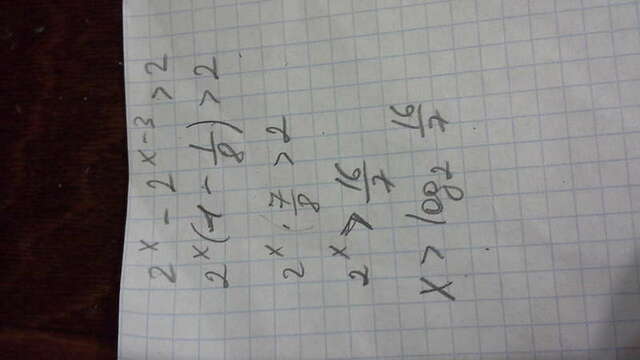 2^x - 2^(x-3) > 2
2^x (1 - 1/8) > 2
2^x · 7/8 > 2
2^x > 16/7
x > log_2 16/7